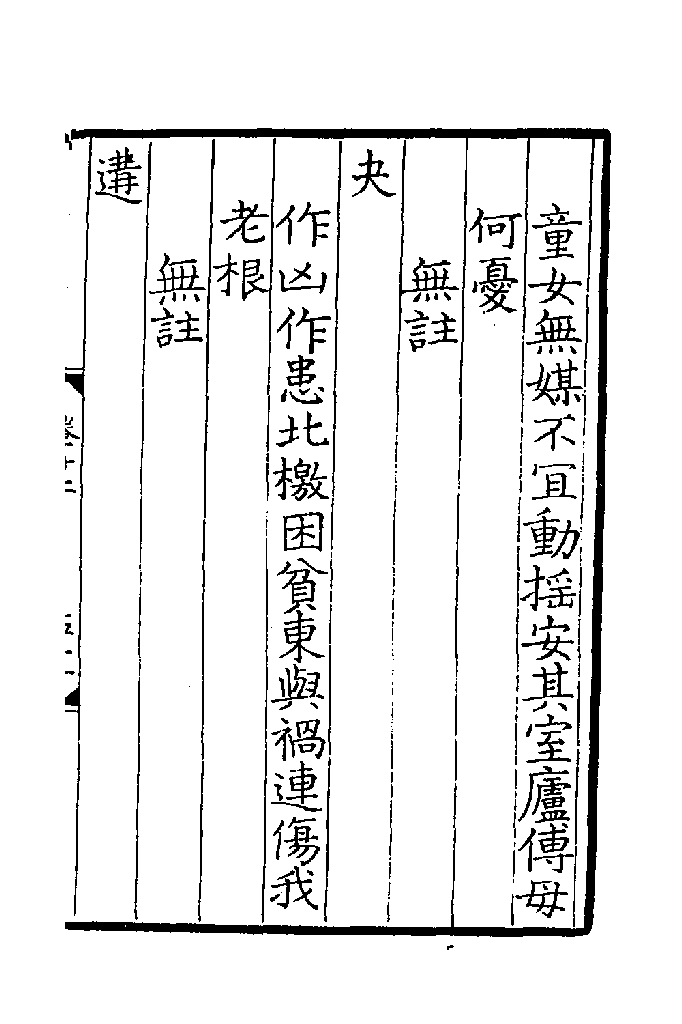 童女無媒不宜動搖安其室廬傅母
何憂
無註
夬
作凶作患北檄困貧東與禍連傷我
老根
無註
遘